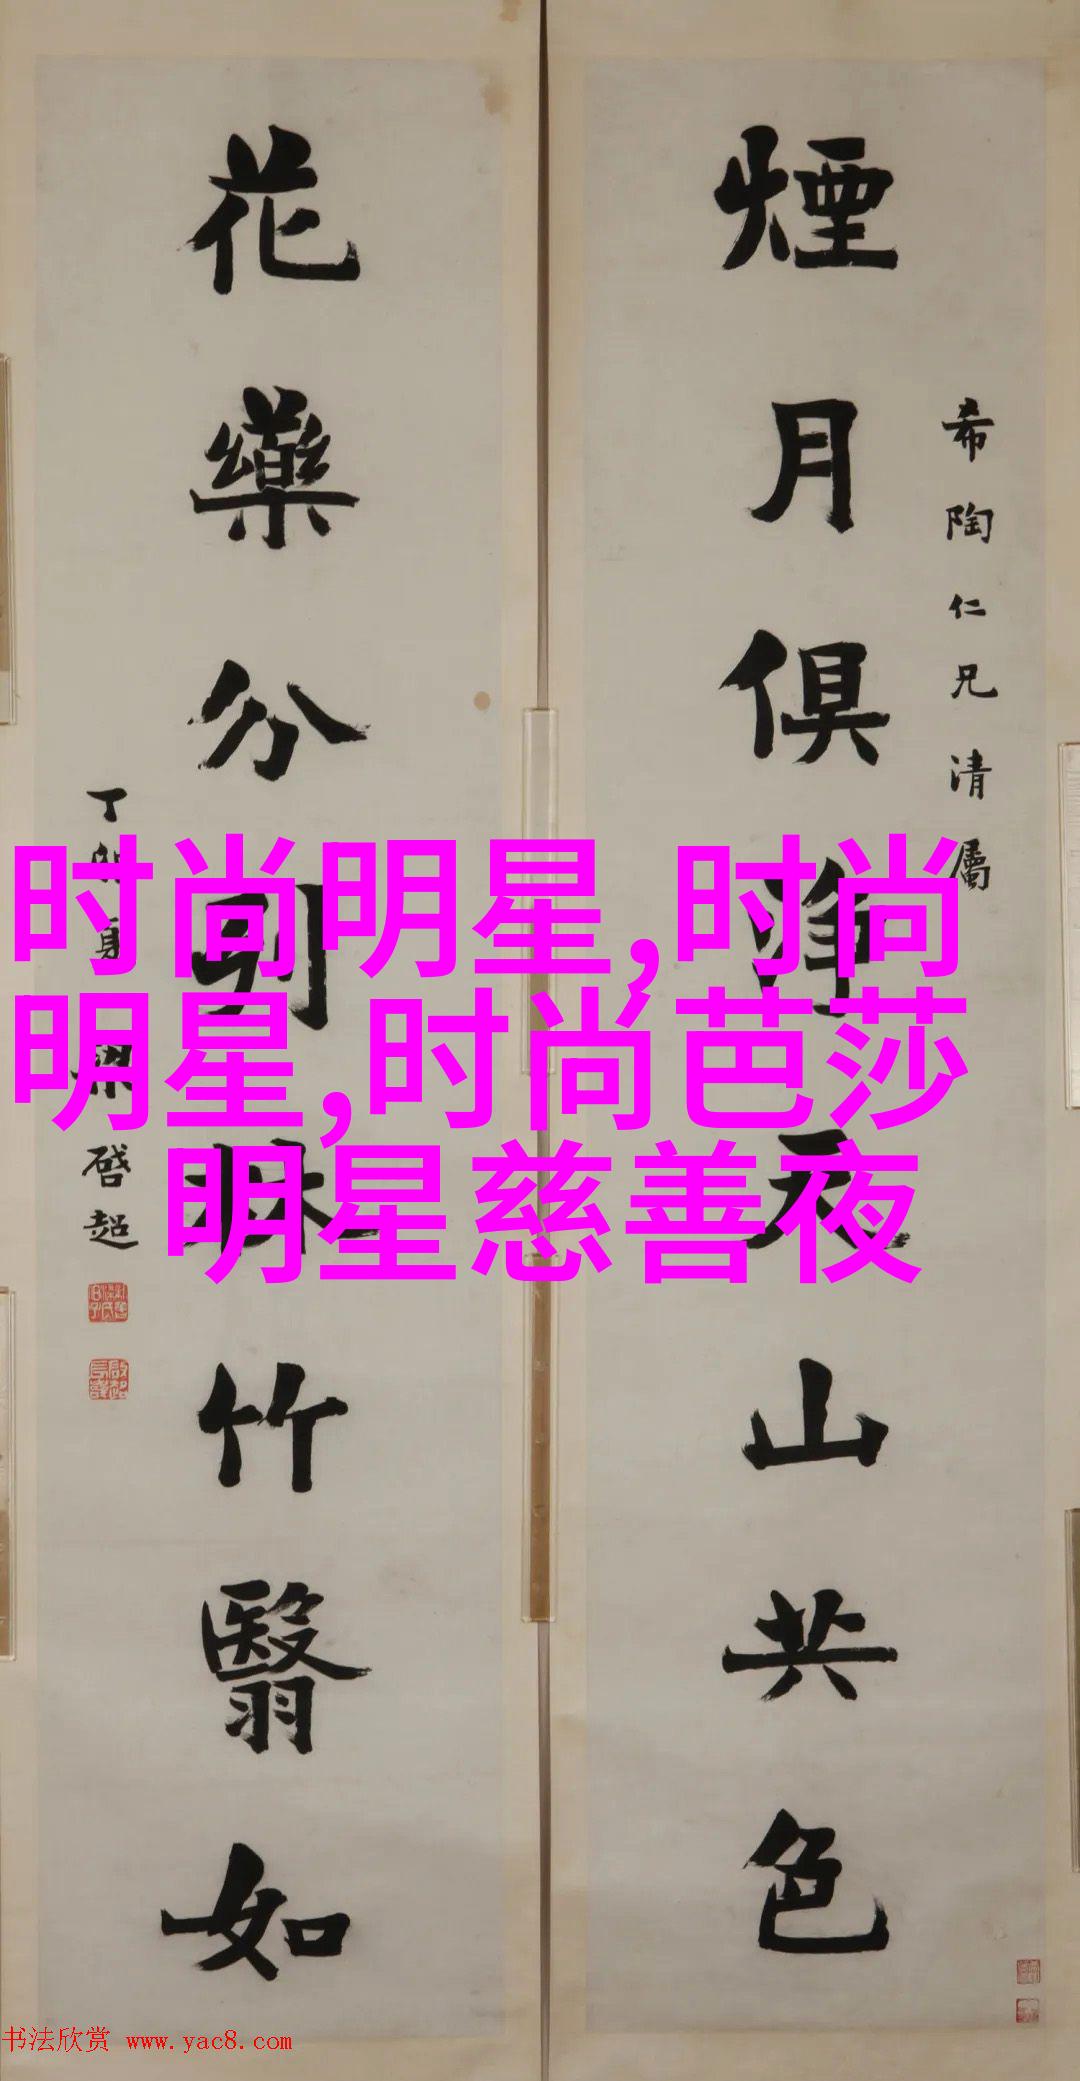 煙月俱淨天山共色
希陶仁兄清屬
花藥分列林竹翳如
丁卯夏梁啓超
时尚明星,时尚
明星,时尚芭莎
明星慈善夜
书法欣赏 www.yac8.com